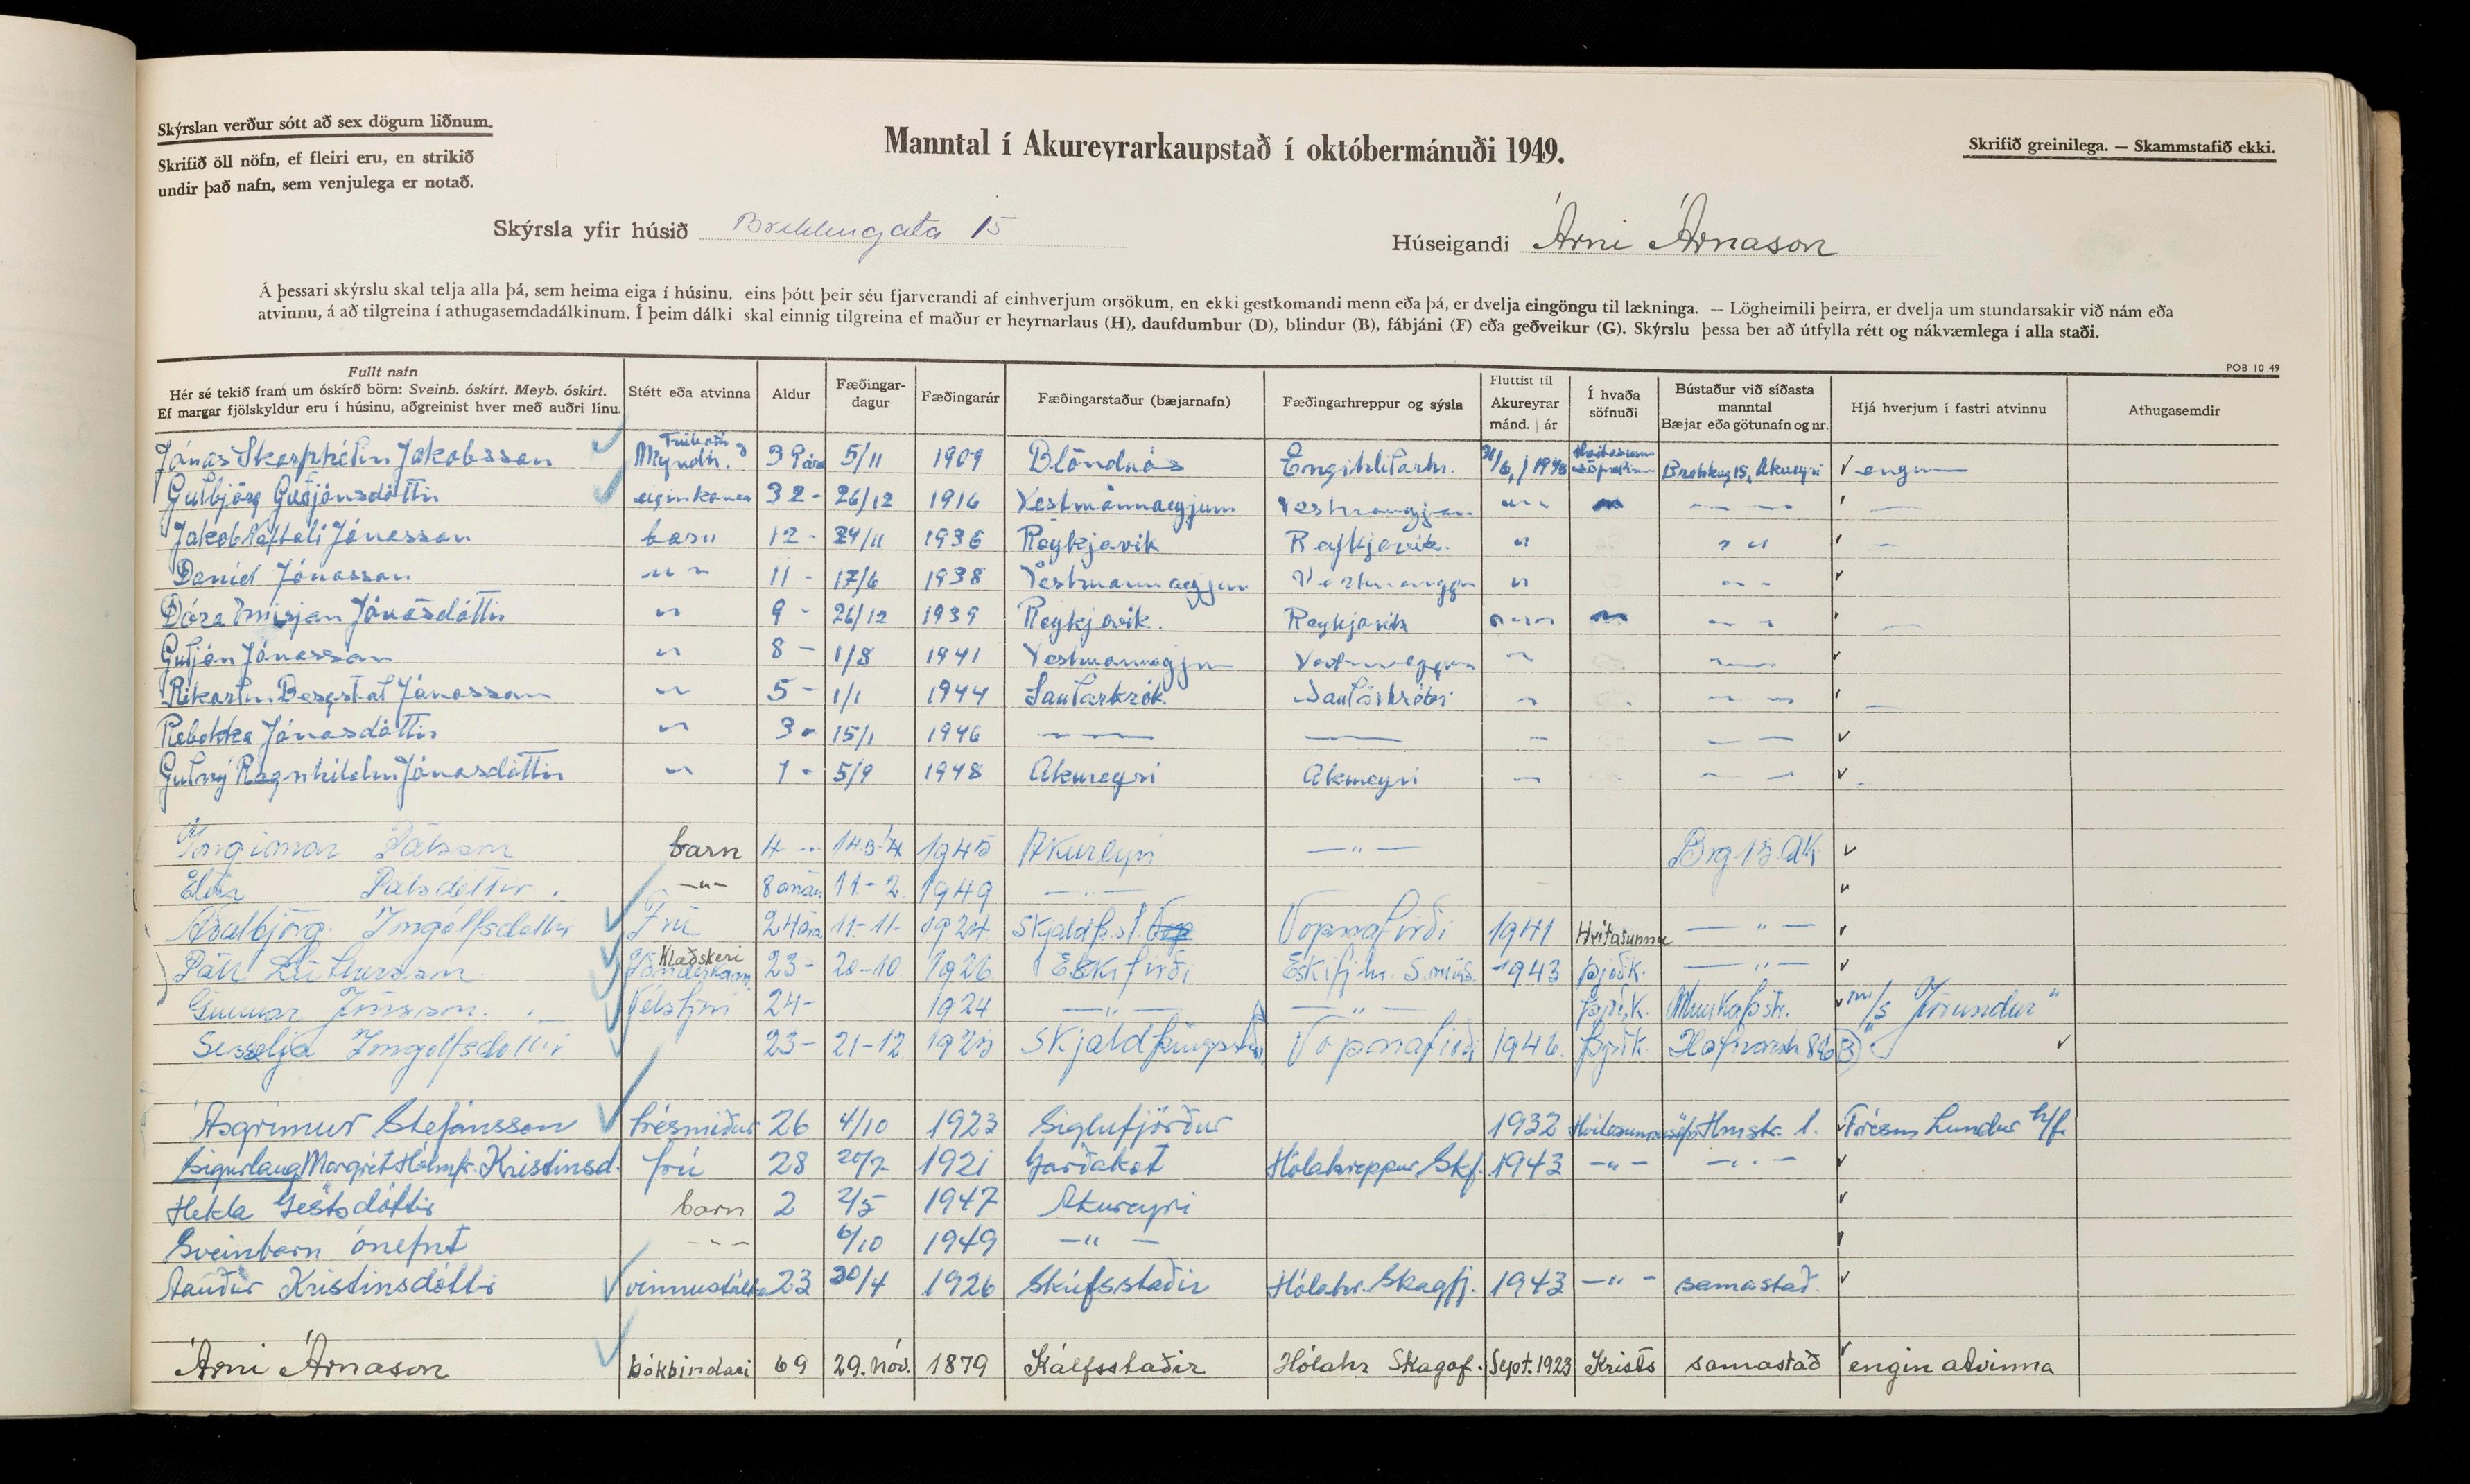 Skýrslan verður sótt að sex dögum liðnum.
Skrifið öll nöfn, ef fleiri eru, en strikið
undir það nafn, sem venjulega er notað.
Manntal í Akureyrarkaupstað í októbermánuði 1949.
Skrifið greinilega. — Skammstafið ekki.
Skýrsla yfir húsið Brekkugata 15
Húseigandi Árni Árnason
Á þessari skýrslu skal telja alla þá, sem heima eiga í húsinu, eins þótt þeir séu fjarverandi af einhverjum orsökum, en ekki gestkomandi menn eða þá, er dvelja eingöngu til lækninga. — Lögheimili þeirra, er dvelja um stundarsakir við nám eða
atvinnu, á að tilgreina í athugasemdadálkinum. Í þeim dálki skal einnig tilgreina ef maður er heyrnarlaus (H), daufdumbur (D), blindur (B), fábjáni (F) eða geðveikur (G). Skýrslu þessa ber að útfylla rétt og nákvæmlega í alla staði.
POB 10 49
Fullt nafn
Hér sé tekið fram um óskírð börn: Sveinb. óskírt. Meyb. óskírt.
Ef margar fjölskyldur eru í húsinu, aðgreinist hver með auðri línu.
Stétt eða atvinna
Aldur
Fæðingar-
dagur
Fæðingarár
Fæðingarstaður (bæjarnafn)
Fæðingarhreppur og sýsla
Fluttist til
Akureyrar
mánd. | ár
Í hvaða
söfnuði
Bústaður við síðasta
manntal
Bæjar eða götunafn og nr.
Hjá hverjum í fastri atvinnu
Athugasemdir
Jónas Skarphéðin Jakobsson Myndh. 39 ára 5/11 1909 Blönduós Engihlíðarhr. 1948 Akureyri engum
Guðbjörg Guðjónsdóttir eiginkona 32 - 26/12 1916 Vestmannaeyjum
Jakob Naftali Jónasson barn 12 - 24/11 1936 Reykjavík Reykjavík "
Daníel Jónasson " " 11 - 17/6 1938 Vestmannaeyjum "
Dóra Jónasdóttir " 9 - 26/12 1939 Reykjavík. Reykjavík
Guðjón Jónasson " 8 - 1/8 1941 Vestmannaeyjum
Jónasson " 5 - 1/1 1944 Sauðarkrók. Sauðárkróki
Rebekka Jónasdóttir " 3 - 15/1 1946
Guðný Ragnhildur Jónasdóttir " 1 - 5/9 1948 Akureyri Akureyri
Ingimar Pálsson barn 4 1945 Akureyri — " — Brg 15. AK
Elín Pálsdóttir. — " — 8 mán 11-2. 1949 — " —
Aðalbjörg Ingólfsdóttir Frú 24 ára 11-11. 1924 Vopnafirði 1941 Hvítasunnu — " —
Páll Lúthersson Klæðskeri 23 - 20-10. 1926 Eskifirði Eskifj.hr. S.múl. 1943 Þjóðk. — " —
Gunnar Jónsson. Vélstjóri 24 - 1924 — " — — " — Þjók. Munkaþstr. m/s "Jörundur"
Sesselja Ingólfsdóttir 23 - 21-12 Vopnafirði 1946. Þjók.
Ásgrímur Stefánsson trésmiður 26 4/10 1923 Siglufjörður 1932 Hvítasunnusöfn Hmstr. 1. Trésm. Lundur h/f.
Sigurlaug Margrét Hólmfr. Kristinsd. frú 28 20/7 1921 Garðakot Hólahreppur Skf. 1943 — " — — " —
Hekla Gestsdóttir barn 2 2/5 1947 Akureyri
Sveinbarn ónefnt - " - 6/10 1949 — " —
Auður Kristinsdóttir vinnustúlka 23 30/4 1926 Skúfsstaðir Hólahr. Skagfj. 1943 — " — samastað.
Árni Árnason bókbindari 69 29. nóv. 1879 Kálfsstaðir Hólahr Skagaf. Sept. 1923 Krists samastað engin atvinna